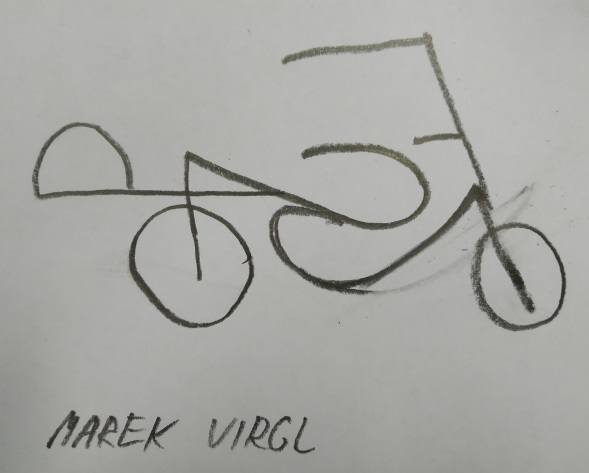 MAREK VIRGL